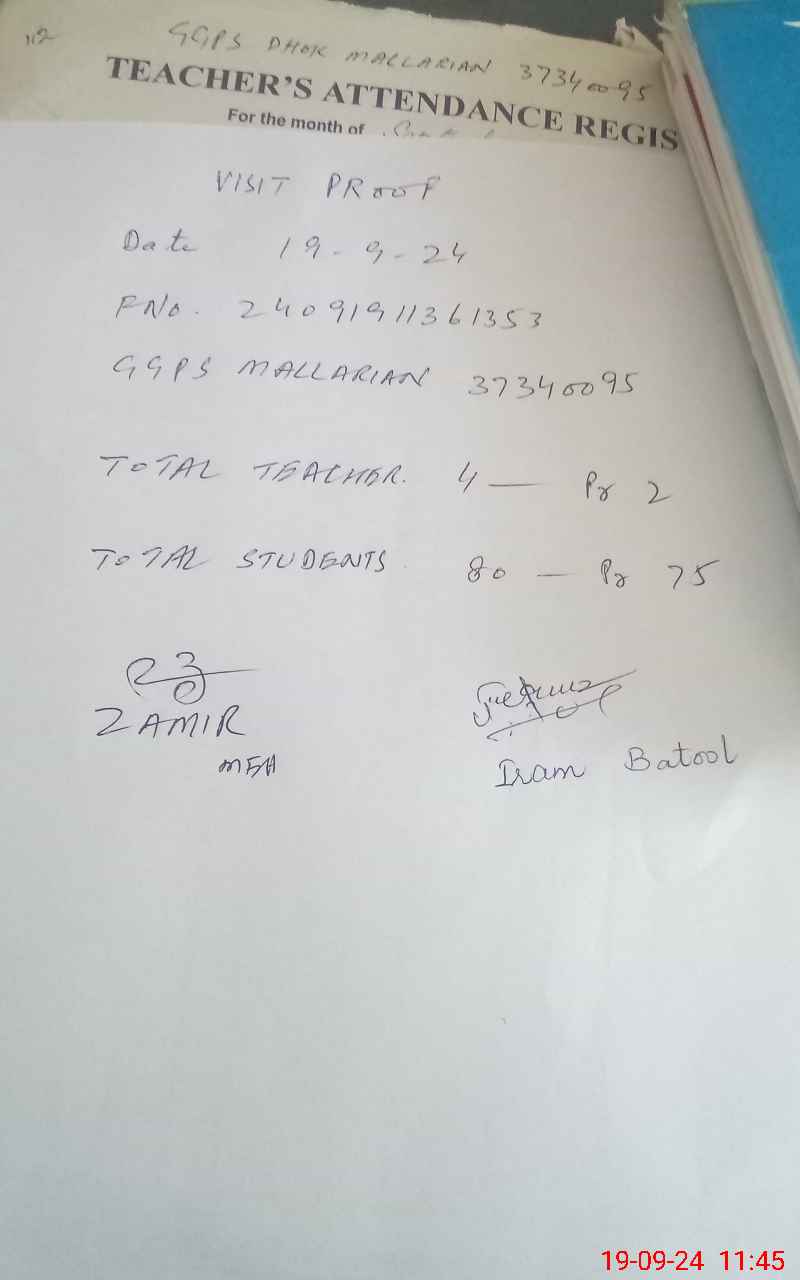 112
GGPS DHOK MALLARIAN 37340095
TEACHER'S ATTENDANCE REGIS
For the month of
VISIT PROOF
Date 19-9-24
FNo. 24091911361353
GGPS MALLARIAN 37340095
TOTAL TEACHER. 4 — Pr 2
TOTAL STUDENTS. 80 — Pr 75
ZAMIR
MEA
Iram Batool
19-09-24 11:45